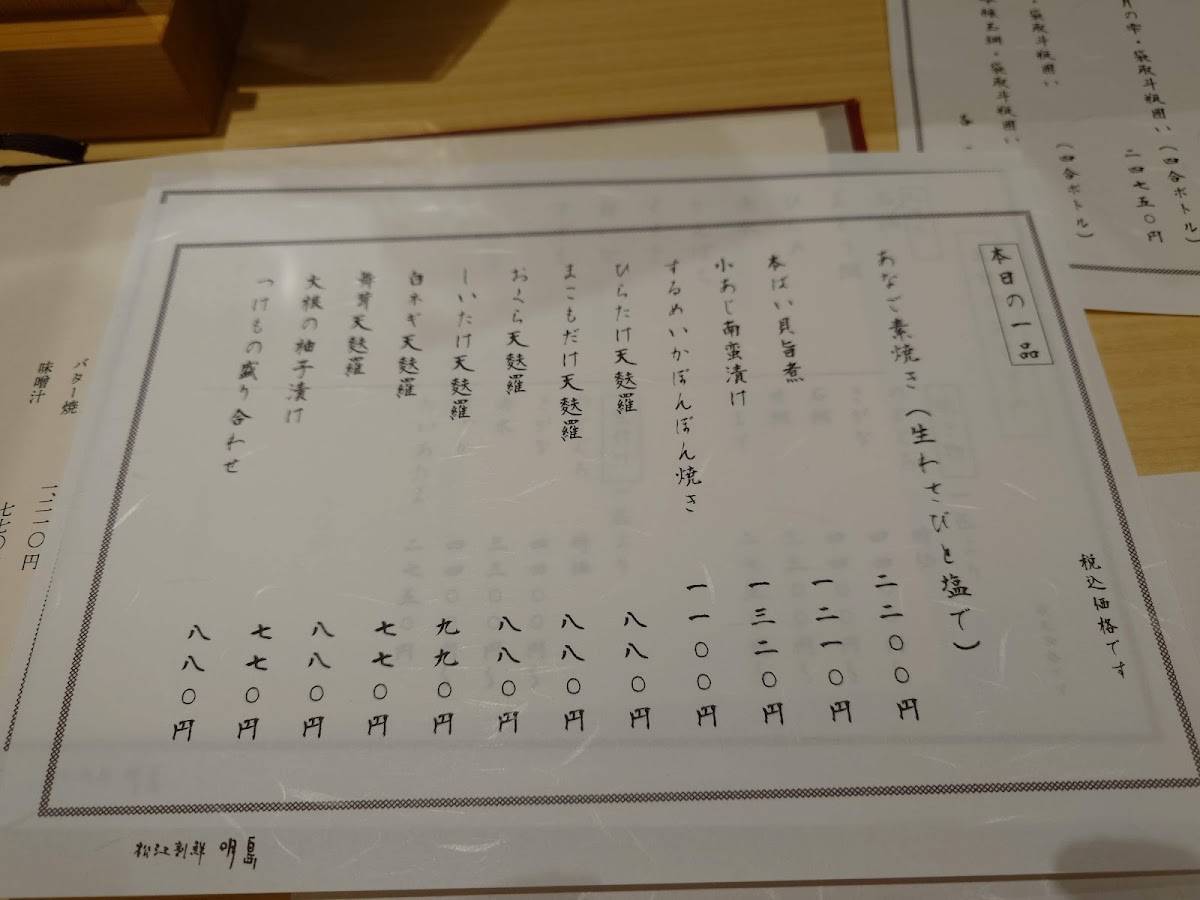 月の雫・袋取斗瓶囲い(四合ボトル)
二四七五〇円
・袋取斗瓶囲い
(四合ボトル)
・袋取斗瓶囲い
税込価格です
本日の一品
あなご素焼き(生わさびと塩で) 二二〇〇円
本ばい貝旨煮 一二一〇円
小あじ南蛮漬け 一三二〇円
するめいかぽんぽん焼き 一一〇〇円
ひらたけ天麩羅 八八〇円
まこもだけ天麩羅 八八〇円
おくら天麩羅 八八〇円
しいたけ天麩羅 九九〇円
白ネギ天麩羅 七七〇円
舞茸天麩羅 八八〇円
大根の柚子漬け 七七〇円
つけもの盛り合わせ 八八〇円
松江割鮮 明島
バター焼 一、二一〇円
味噌汁 七七〇